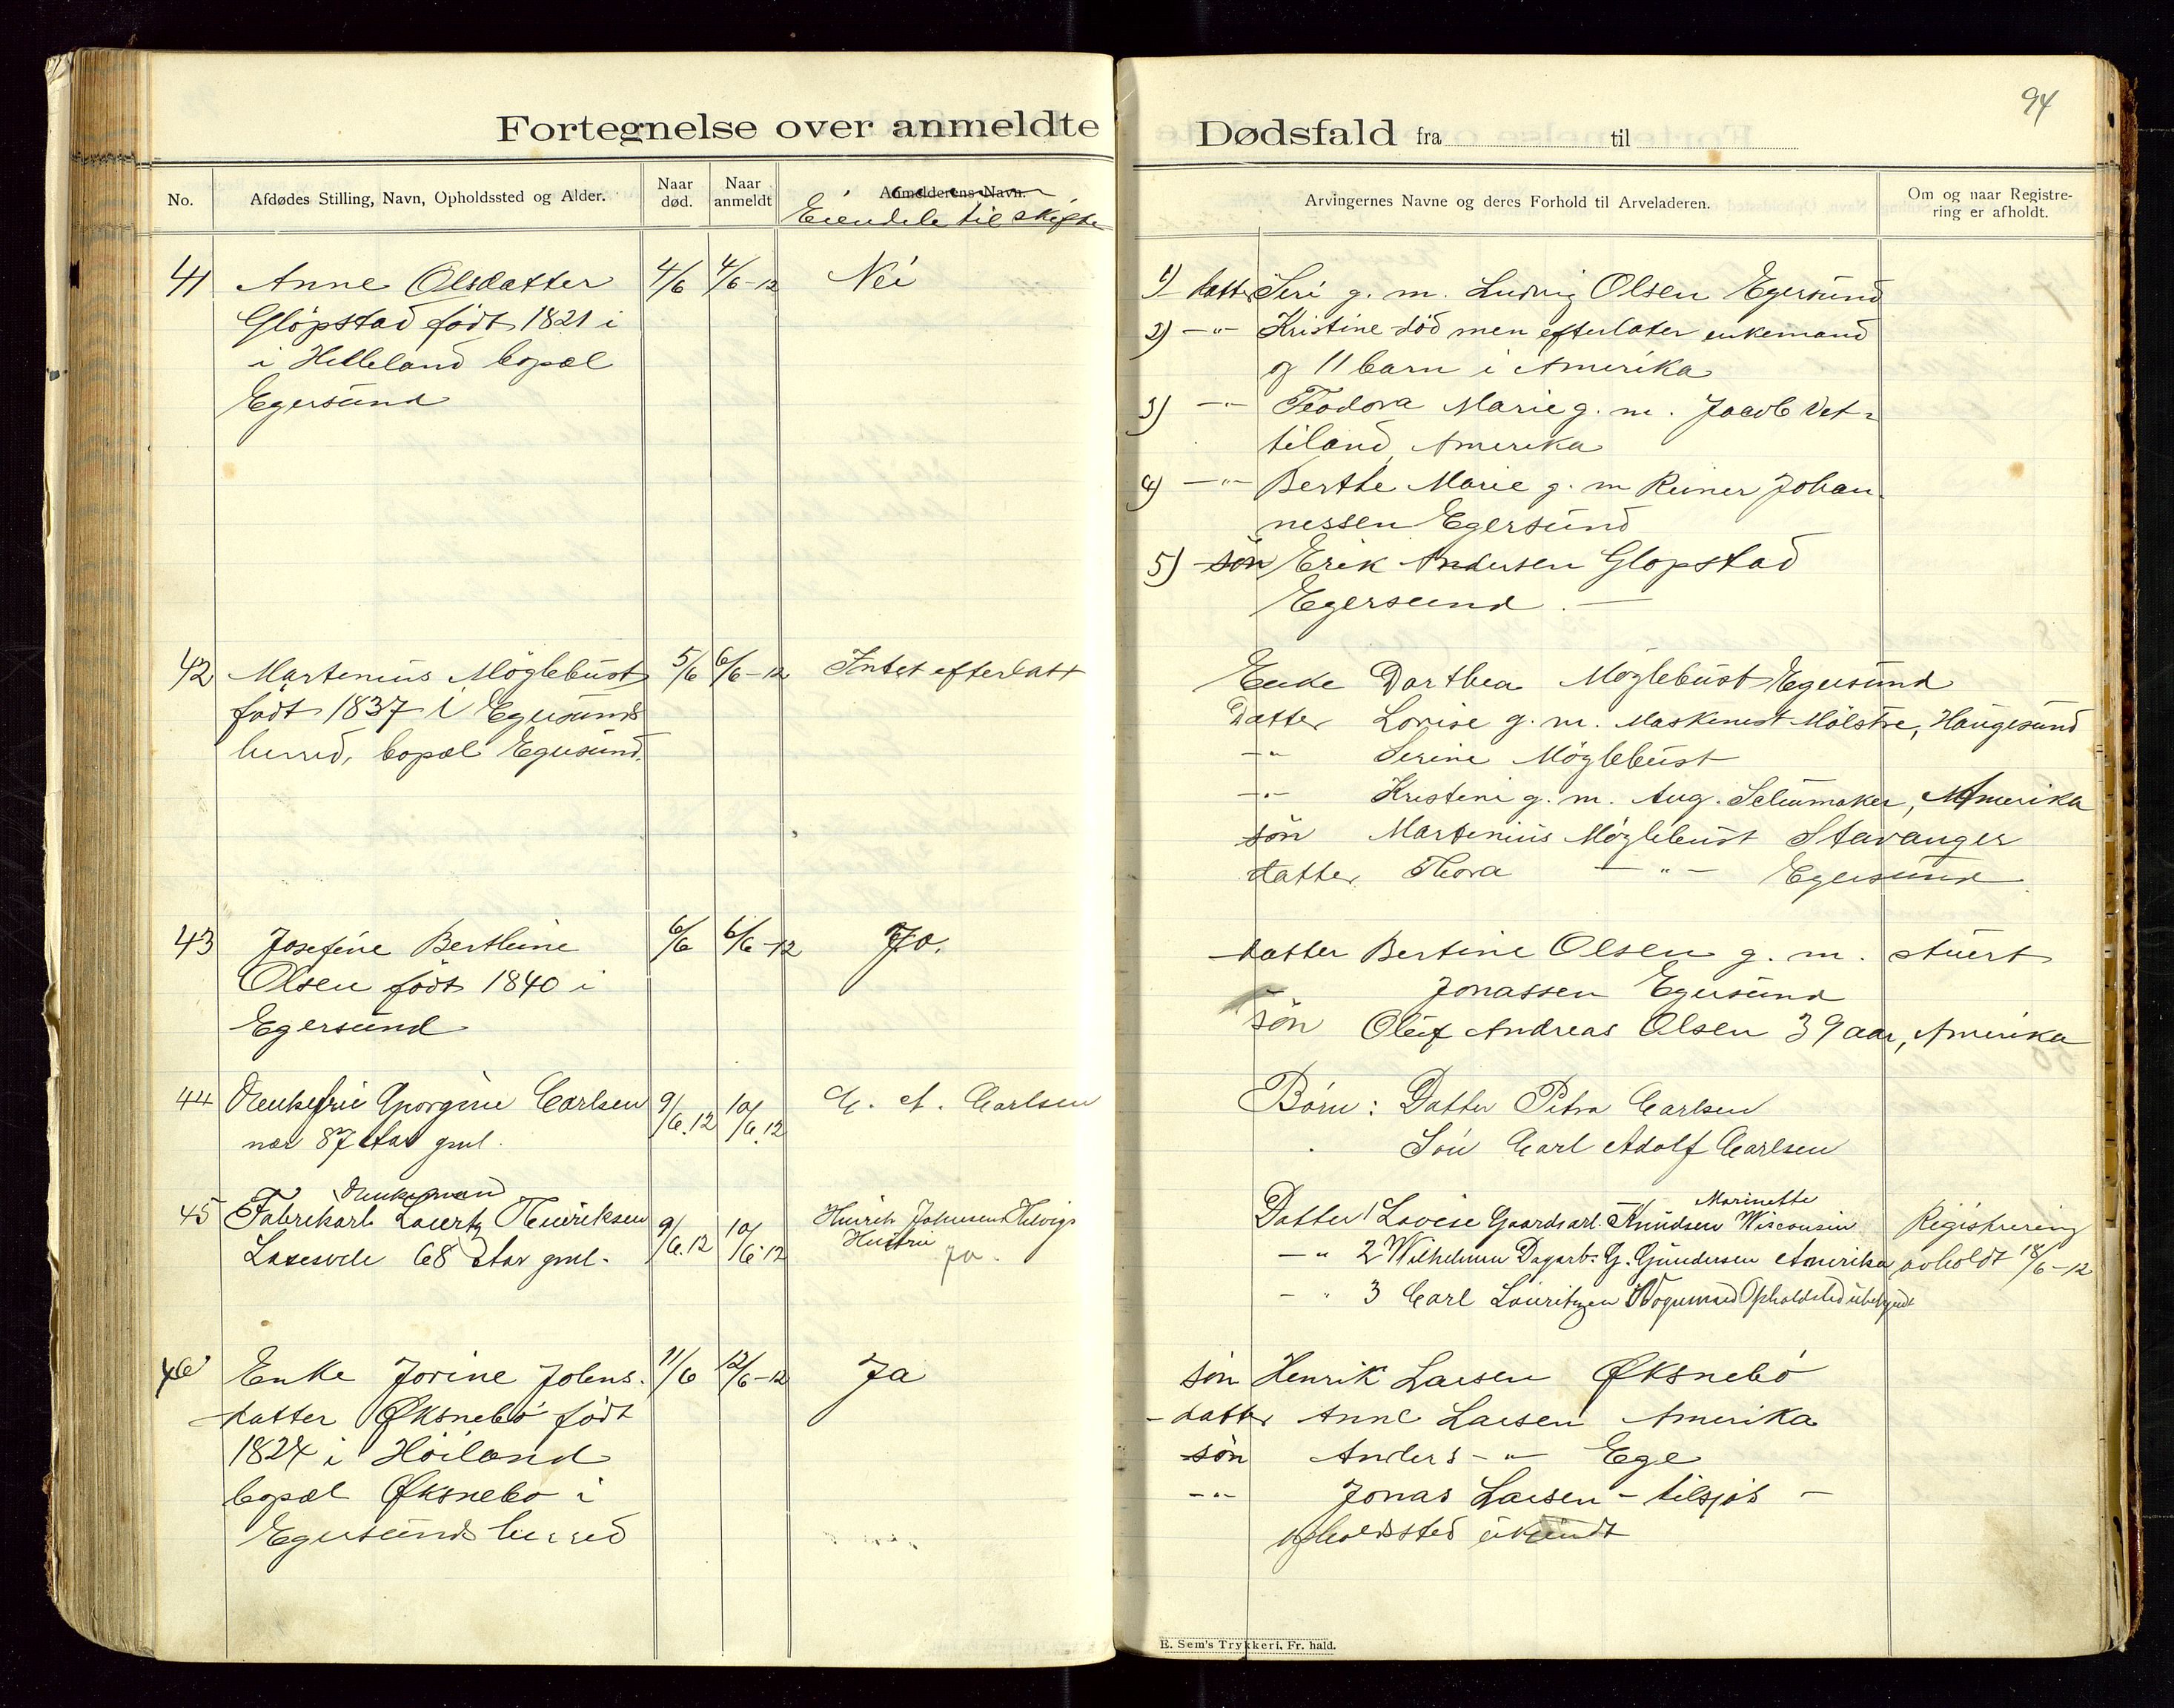 Fortegnelse over anmeldte
No.
Afdødes Stilling, Navn, Opholdssted og Alder.
Naar død.
Naar anmeldt
Anmelderens Navn.
Eiendele til skifte
41 Anne Olsdatter 4/6 4/6-12 Nei
Glöpstad födt 1821 i
i Helleland bopæl
Egersund
42 Martenius Möglebust 5/6 6/6-12 Intet efterlatt
födt 1837 i Egersunds
herred, bopæl Egersund.
43 Josefine Berthine 6/6 6/6-12 Jo.
Olsen födt 1840 i
Egersund
44 Enkefru Georgine Carlsen 9/6.12 10/6.12 C. A. Carlsen
nær 87 Aar gml.
Enkemand
45 Fabrikarb. Lauertz Henriksen 9/6.12 10/6.12 Henrik Johnsen Helvigs
Hustru
Laxesvele 68 Aar gml. ja.
46 Enke Jorine Johns. 11/6 12/6-12 Ja
datter Øksnebö födt
1824 i Höiland
bopæl Øksnebö i
Egersunds herred
94
Dødsfald fra til
Arvingernes Navne og deres Forhold til Arveladeren.
Om og naar Registre-
ring er afholdt.
1) datter Seri g. m. Ludvig Olsen Egersund
2) -"- Kristine död men efterlater enkemand
og 11 barn i Amerika
3) -"- Teodora Marie g. m. Jacob Vet-
teland, Amerika
4) -"- Berthe Marie g. m Reiner Johan
nessen Egersund
5) sön Erik Andersen Glopstad
Egersund. —
Enke Dorthea Möglebust Egersund
Datter Lovise g. m. Maskinist Mölstre, Haugesund
-"- Serine Möglebust
-"- Kristine g. m. Aug. Schumaker, Amerika
sön Martenius Möglebust Stavanger
datter Thora -"- Egersund
datter Bertine Olsen g. m. stuert
Jonassen Egersund
sön Oluf Andreas Olsen 39 aar, Amerika
Börn: Datter Petra Carlsen
Sön Carl Adolf Carlsen
Marinette
Datter 1 Lovise Gaardsarb. Knudsen Wisconsin Registrering
-" 2 Wilhelmine Dagarb. G. Gundersen Amerika avholdt 18/6-12
-" 3 Carl Lauritzen Opholdsted ubekjendt
sön Henrik Larsen Øksnebö
- datter Anne Larsen Amerika
sön Anders -"- Ege
-"- Jonas Larsen - tilsjös -
opholdssted ukjendt
E. Sem's Trykkeri, Fr. hald.